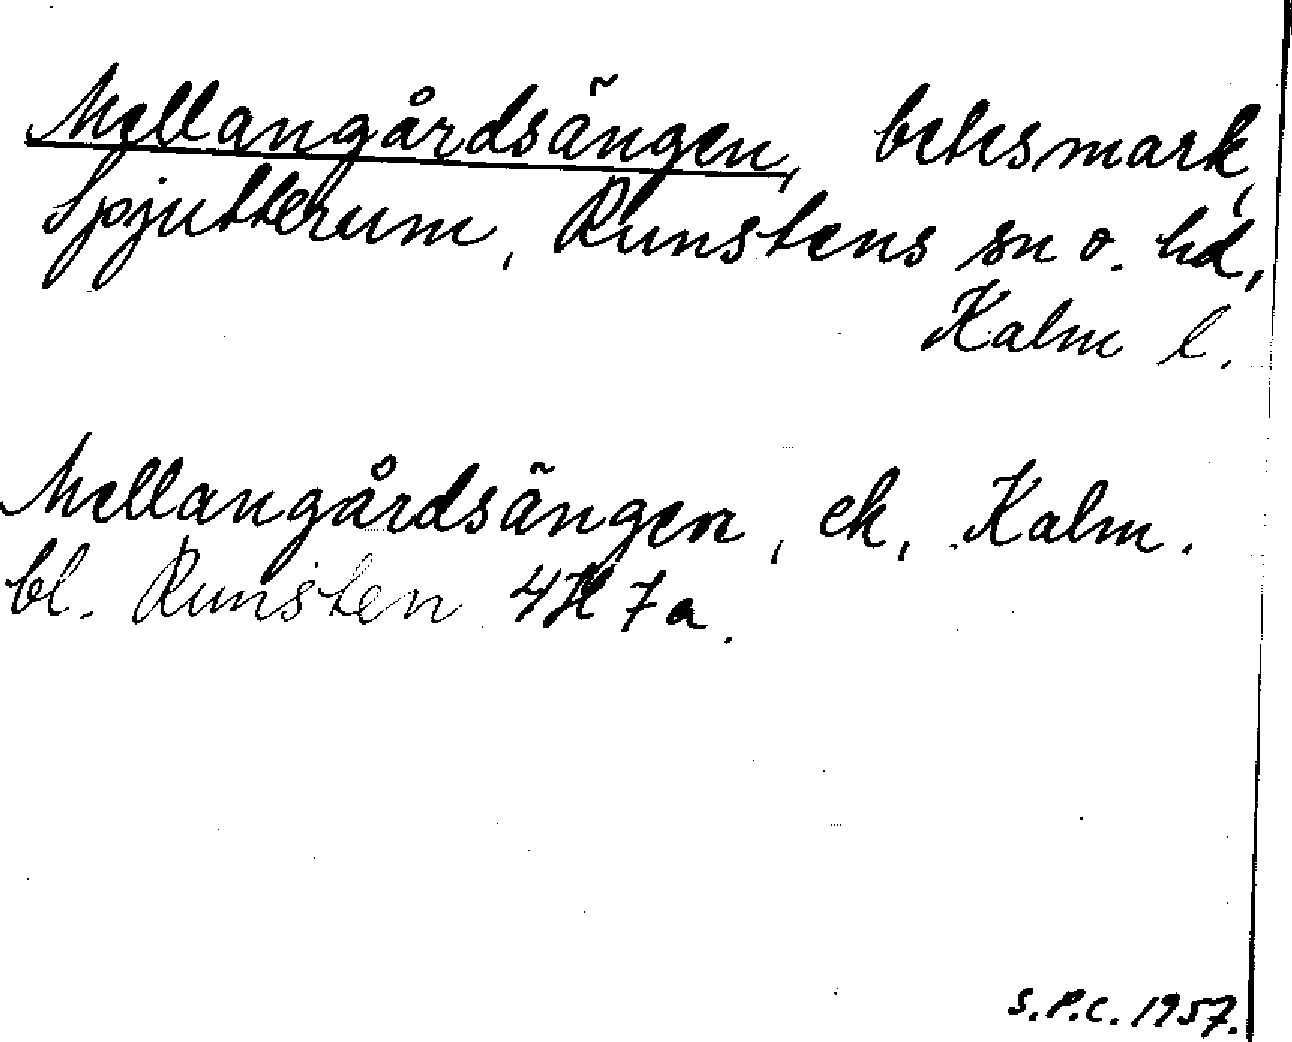 Mellangårdsängen, betesmark,
Spjutterum, Runstens sn o. hd,
Kalm l.
Mellangårdsängen, ek, Kalm.
bl. Runsten 4H 7a.
S.P.C. 1957.